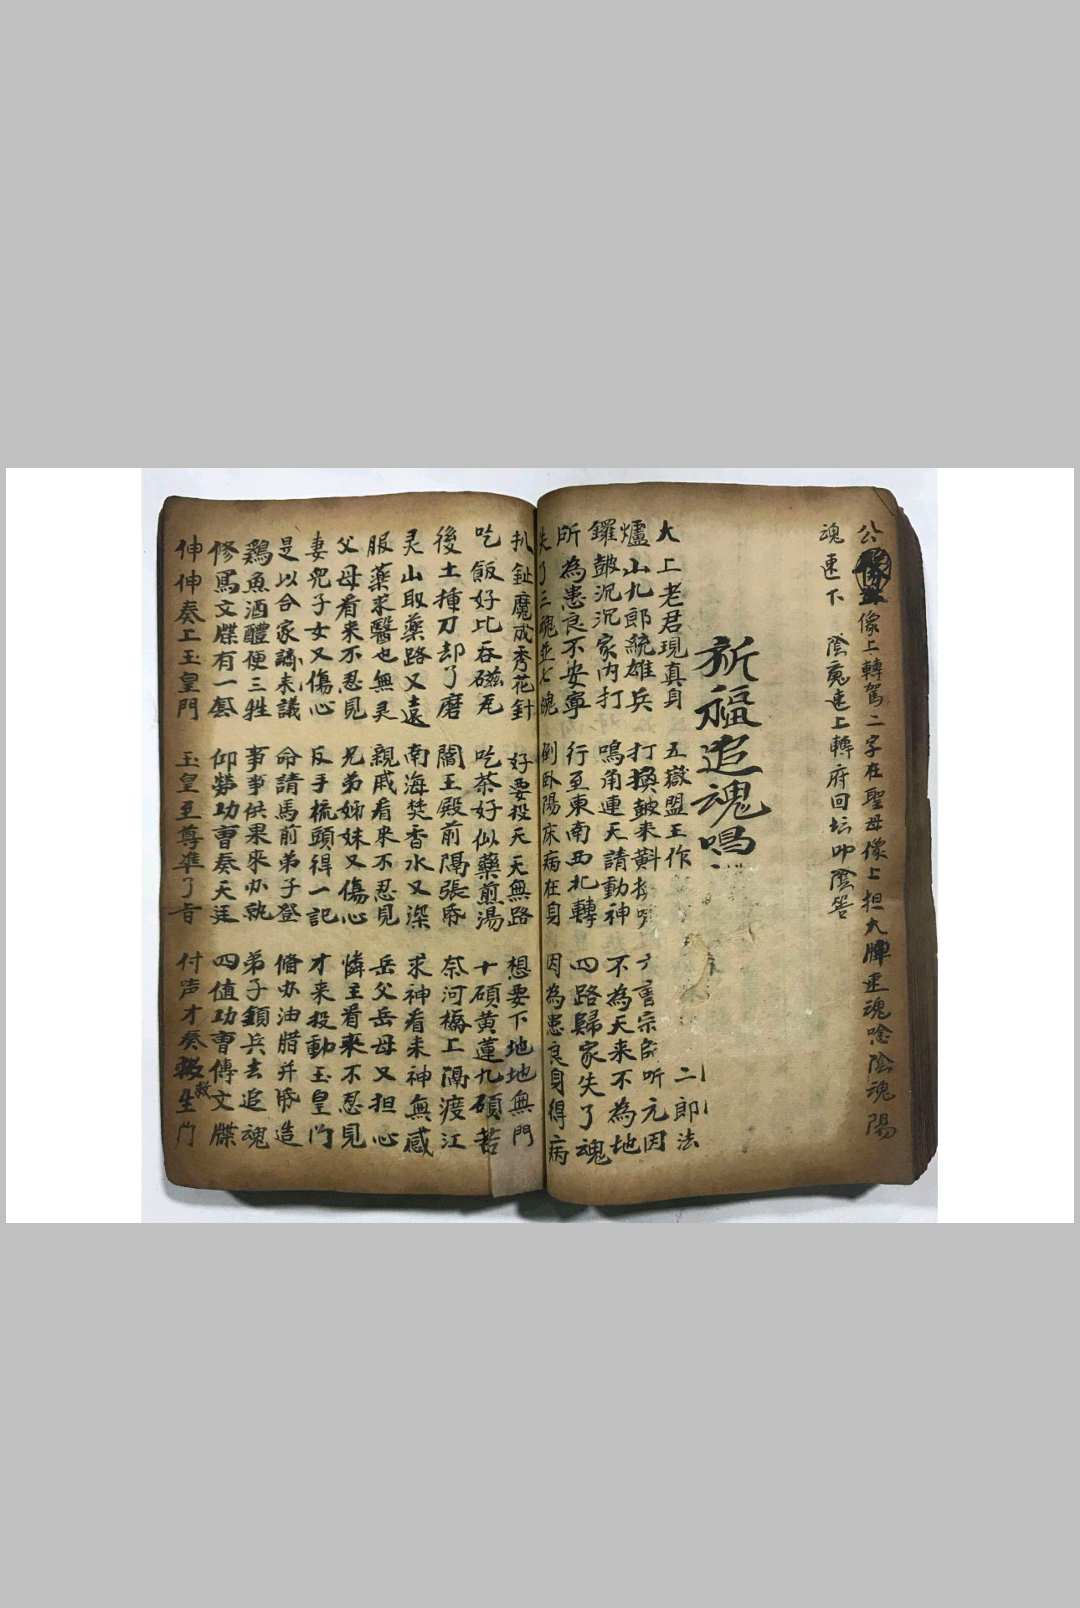 公像上轉駕二字在聖母像上担大牌正魂唸陰魂陽
魂速下 陰魂速上轉府回坛叩陰筶
祈福追魂唱
太上老君現真身 五嶽盟王作 二郎法
爐山九郎統雄兵 打換皷来 听元因
鑼皷沉沉家內打 鳴角連天請動神 不為天来不為地
所為患良不安寧 行至東南西北轉 四路歸家失了魂
失了三魂並七魄 倒臥陽床病在身 因為患良身得病
扒鈯魔成秀花針 好要投天天無路 想要下地地無門
吃飯好比吞磁瓦 吃茶好似藥煎湯 十碩黄蓮九碩苦
後土揷刀却了磨 閻王殿前隔張帋 奈河橋上隔渡江
灵山取藥路又遠 南海焚香水又深 求神看来神無感
服藥求醫也無灵 親戚看來不忍見 岳父岳母又担心
父母看来不忍見 兄弟姊妹又傷心 憐主看来不忍見
妻兒子女又傷心 反手梳頭得一記 才来投動玉皇门
是以合家謪来議 命請馬前弟子登 俻办油腊并帋造
鷄魚酒醴便三牲 事事供果來办執 弟子領兵去追魂
修寫文牒有一套 仰勞功曹奏天廷 四值功曹傳文牒
伸伸奏上玉皇門 玉皇至尊準了旨 付声才奏救生门